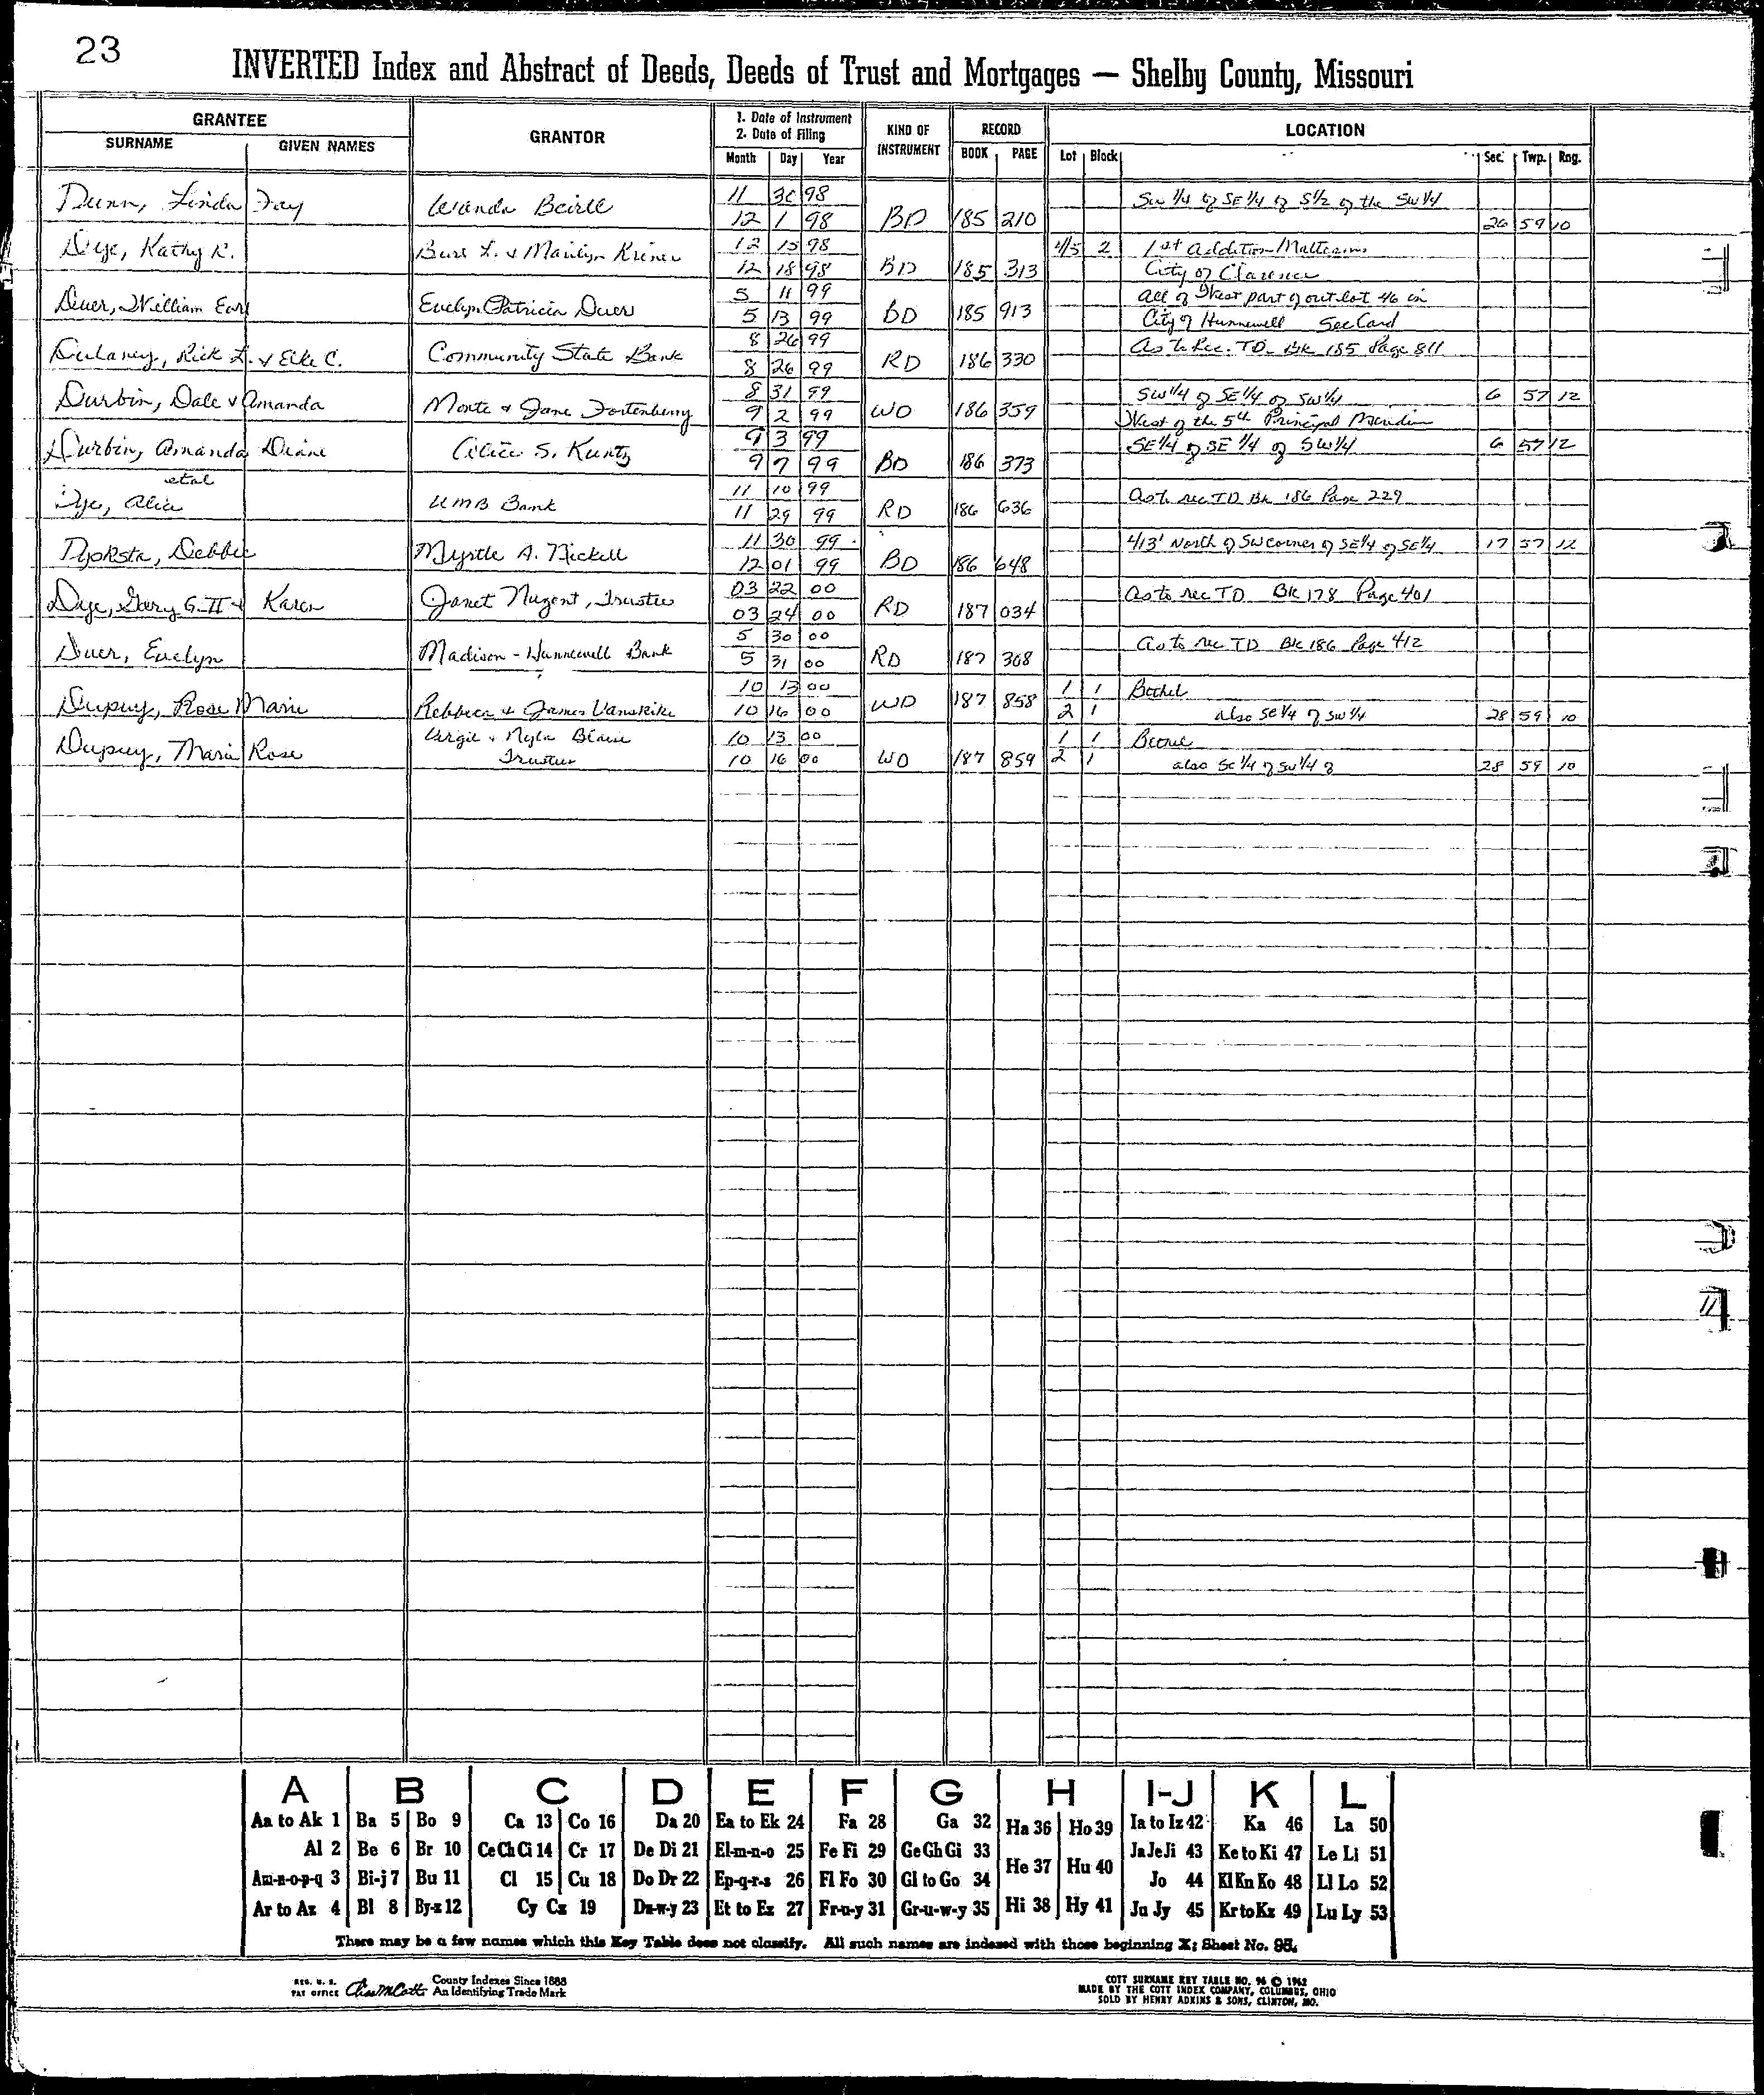 23
INVERTED Index and Abstract of Deeds, Deeds of Trust and Mortgages — Shelby County, Missouri
GRANTEE
SURNAME GIVEN NAMES
GRANTOR
1. Date of Instrument
2. Date of Filing
Month Day Year
KIND OF INSTRUMENT
RECORD
BOOK PAGE
LOCATION
Lot Block Sec. Twp. Rng.
Dunn, Linda Fay Wanda 11 30 98 SW 1/4 of SE 1/4 of S 1/2 of the SW 1/4
12 1 98 BD 185 210 26 59 10
Dye, Kathy R. & Marilyn 12 15 98 4/5 2 1st Addition
12 18 98 BD 185 313 City of Clarence
Duer, William Earl Evelyn Patricia Duer 5 11 99 All of West part of outlot 46 in
5 13 99 BD 185 913 City of Hunnewell See Card
Dulaney, Rick L. & C. Community State Bank 8 26 99 As to Rec. TD Bk 185 Page 811
8 26 99 RD 186 330
Durbin, Dale & Amanda Monte & Jane Fortenberry 8 31 99 SW 1/4 of SE 1/4 of SW 1/4 6 57 12
9 2 99 WD 186 359 West of the 5th Principal Meridian
Durbin, Amanda Diane Alice S. Kuntz 9 3 99 SE 1/4 of SE 1/4 of SW 1/4 6 57 12
etal 9 7 99 BD 186 373
Dye, Alice UMB Bank 11 10 99 As to rec TD Bk 186 Page 229
11 29 99 RD 186 636
Dykstra, Debbie Myrtle A. Nickell 11 30 99 413' North of SW corner of SE 1/4 of SE 1/4 17 57 12
12 01 99 BD 186 648
Dye, Gary G. II & Karen Janet Nugent, Trustee 03 22 00 As to rec TD Bk 178 Page 401
03 24 00 RD 187 034
Duer, Evelyn Madison-Hunnewell Bank 5 30 00 As to rec TD Bk 186 Page 412
5 31 00 RD 187 308
Dupuy, Rose Marie Rebbeca & James Vanskike 10 13 00 WD 187 858 1 1 Bethel
10 16 00 2 1 also SE 1/4 of SW 1/4 28 59 10
Dupuy, Marie Rose Virgil & Nyla 10 13 00 1 1 Bethel
Trustee 10 16 00 WD 187 859 2 1 also SE 1/4 of SW 1/4 of 28 59 10
A B C D E F G H I-J K L
Aa to Ak 1 Ba 5 Bo 9 Ca 13 Co 16 Da 20 Ea to Ek 24 Fa 28 Ga 32 Ha 36 Ho 39 Ia to Iz 42 Ka 46 La 50
Al 2 Be 6 Br 10 Ce Ch Ci 14 Cr 17 De Di 21 El-m-n-o 25 Fe Fi 29 Ge Gh Gi 33 He 37 Hu 40 Ja Je Ji 43 Ke to Ki 47 Le Li 51
Am-n-o-p-q 3 Bi-j 7 Bu 11 Cl 15 Cu 18 Do Dr 22 Ep-q-r-s 26 Fl Fo 30 Gl to Go 34 Jo 44 Kl Kn Ko 48 Ll Lo 52
Ar to Az 4 Bl 8 By-z 12 Cy Cz 19 Du-w-y 23 Et to Ez 27 Fr-u-y 31 Gr-u-w-y 35 Hi 38 Hy 41 Ju Jy 45 Kr to Kz 49 Lu Ly 53
There may be a few names which this Key Table does not classify. All such names are indexed with those beginning X; Sheet No. 95.
REG. U. S. PAT OFFICE County Indexes Since 1888
An Identifying Trade Mark
COTT SURNAME KEY TABLE NO. 96 © 1962
MADE BY THE COTT INDEX COMPANY, COLUMBUS, OHIO
SOLD BY HENRY ADKINS & SONS, CLINTON, MO.